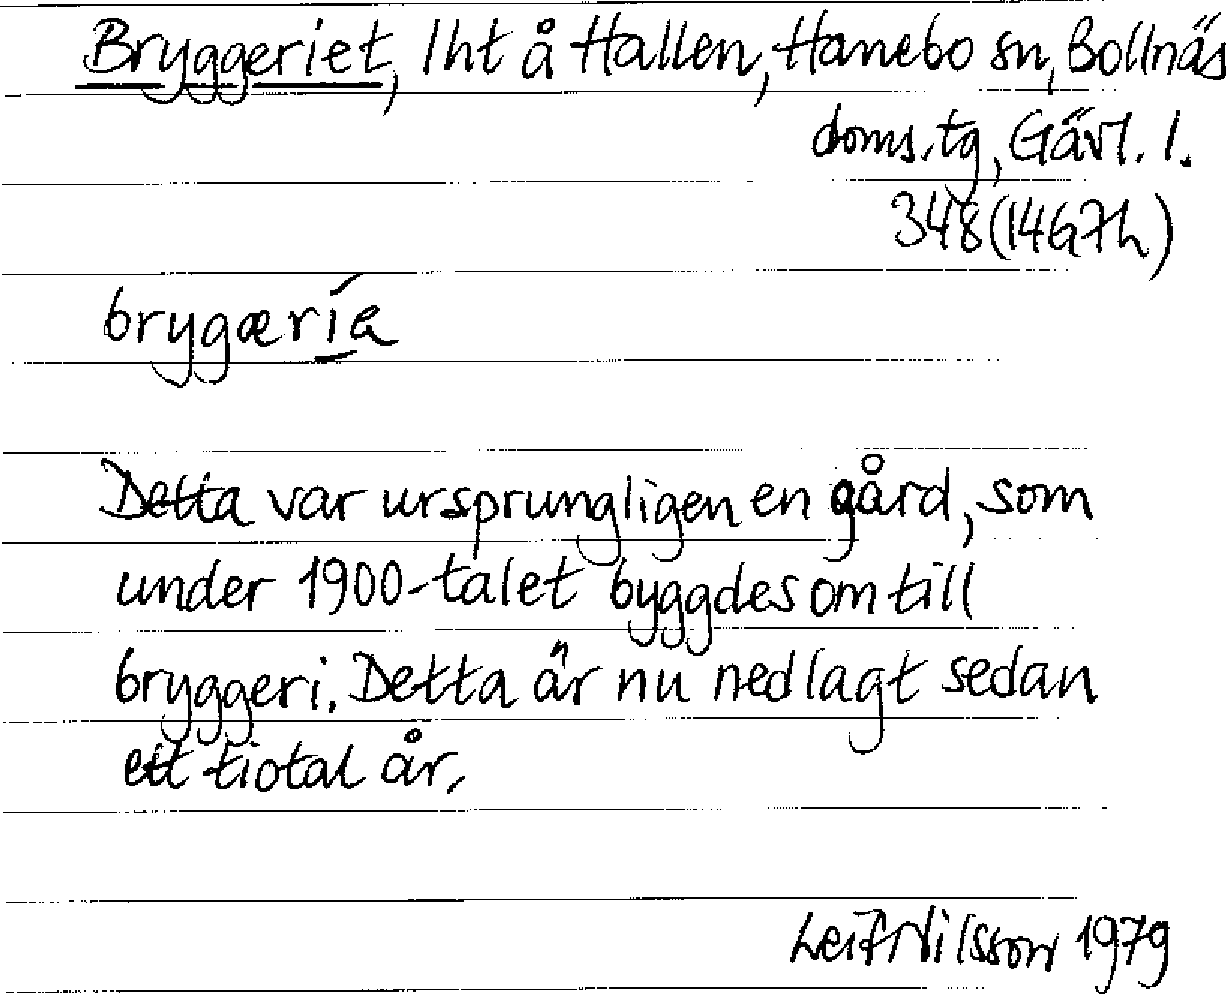 Bryggeriet, lht å Hallen, Hanebo sn, Bollnäs
doms.tg, Gävl. l.
348(14G7h)
brygæría
Detta var ursprungligen en gård, som
under 1900-talet byggdes om till
bryggeri. Detta är nu nedlagt sedan
ett tiotal år.
Leif Nilsson 1979